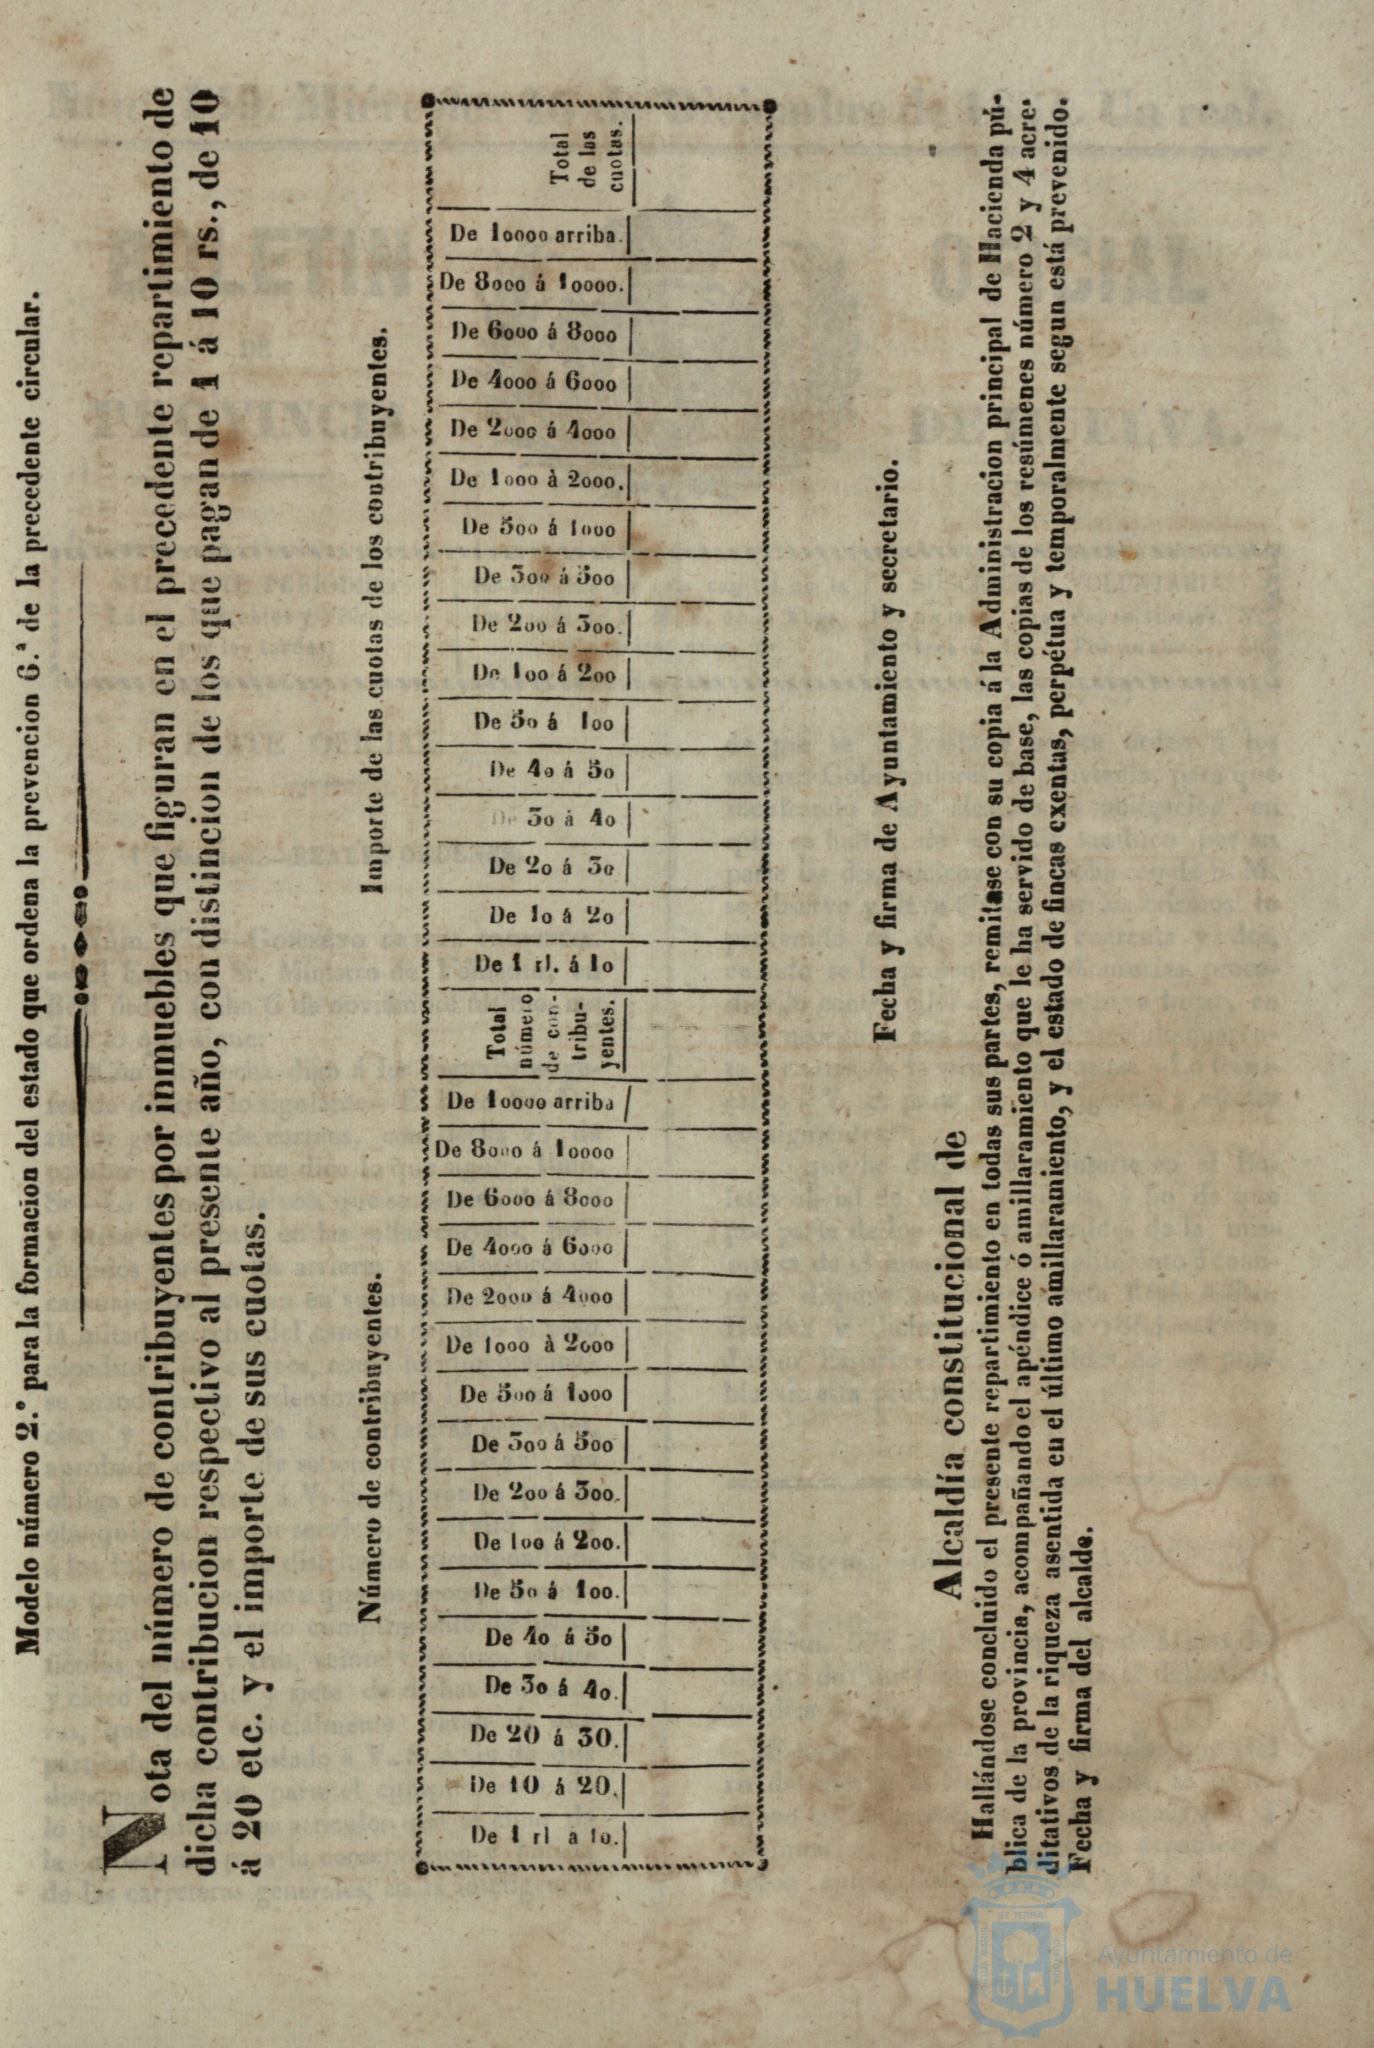 Modelo número 2.º para la formacion del estado que ordena la prevencion 6.ª de la precedente circular.
Nota del número de contribuyentes por inmuebles que figuran en el precedente repartimiento de
dicha contribucion respectivo al presente año, con distincion de los que pagan de 1 á 10 rs., de 10
á 20 etc. y el importe de sus cuotas.
Número de contribuyentes.
De 1 rl a 10.
De 10 á 20.
De 20 á 30.
De 30 á 40.
De 40 á 50
De 50 á 100.
De 100 á 200.
De 200 á 300.
De 300 á 500
De 500 á 1000
De 1000 à 2000
De 2000 á 4000
De 4000 á 6000
De 6000 á 8000
De 8000 á 10000
De 10000 arriba
Total
número
de con-
tribu-
yentes.
Importe de las cuotas de los contribuyentes.
De 1 rl. á 10
De 10 á 20
De 20 á 30
De 30 á 40
De 40 á 50
De 50 á 100
De 100 á 200
De 200 á 300.
De 300 á 500
De 500 á 1000
De 1000 à 2000.
De 2000 á 4000
De 4000 á 6000
De 6000 á 8000
De 8000 á 10000.
De 10000 arriba.
Total
de las
cuotas.
Fecha y firma de Ayuntamiento y secretario.
Alcaldía constitucional de
Hallándose concluido el presente repartimiento en todas sus partes, remitase con su copia á la Administracion principal de Hacienda pú-
blica de la provincia, acompañando el apéndice ó amillaramiento que le ha servido de base, las copias de los resúmenes número 2 y 4 acre-
ditativos de la riqueza asentida en el último amillaramiento, y el estado de fincas exentas, perpétua y temporalmente segun está prevenido.
Fecha y firma del alcalde.
Ayuntamiento de
HUELVA